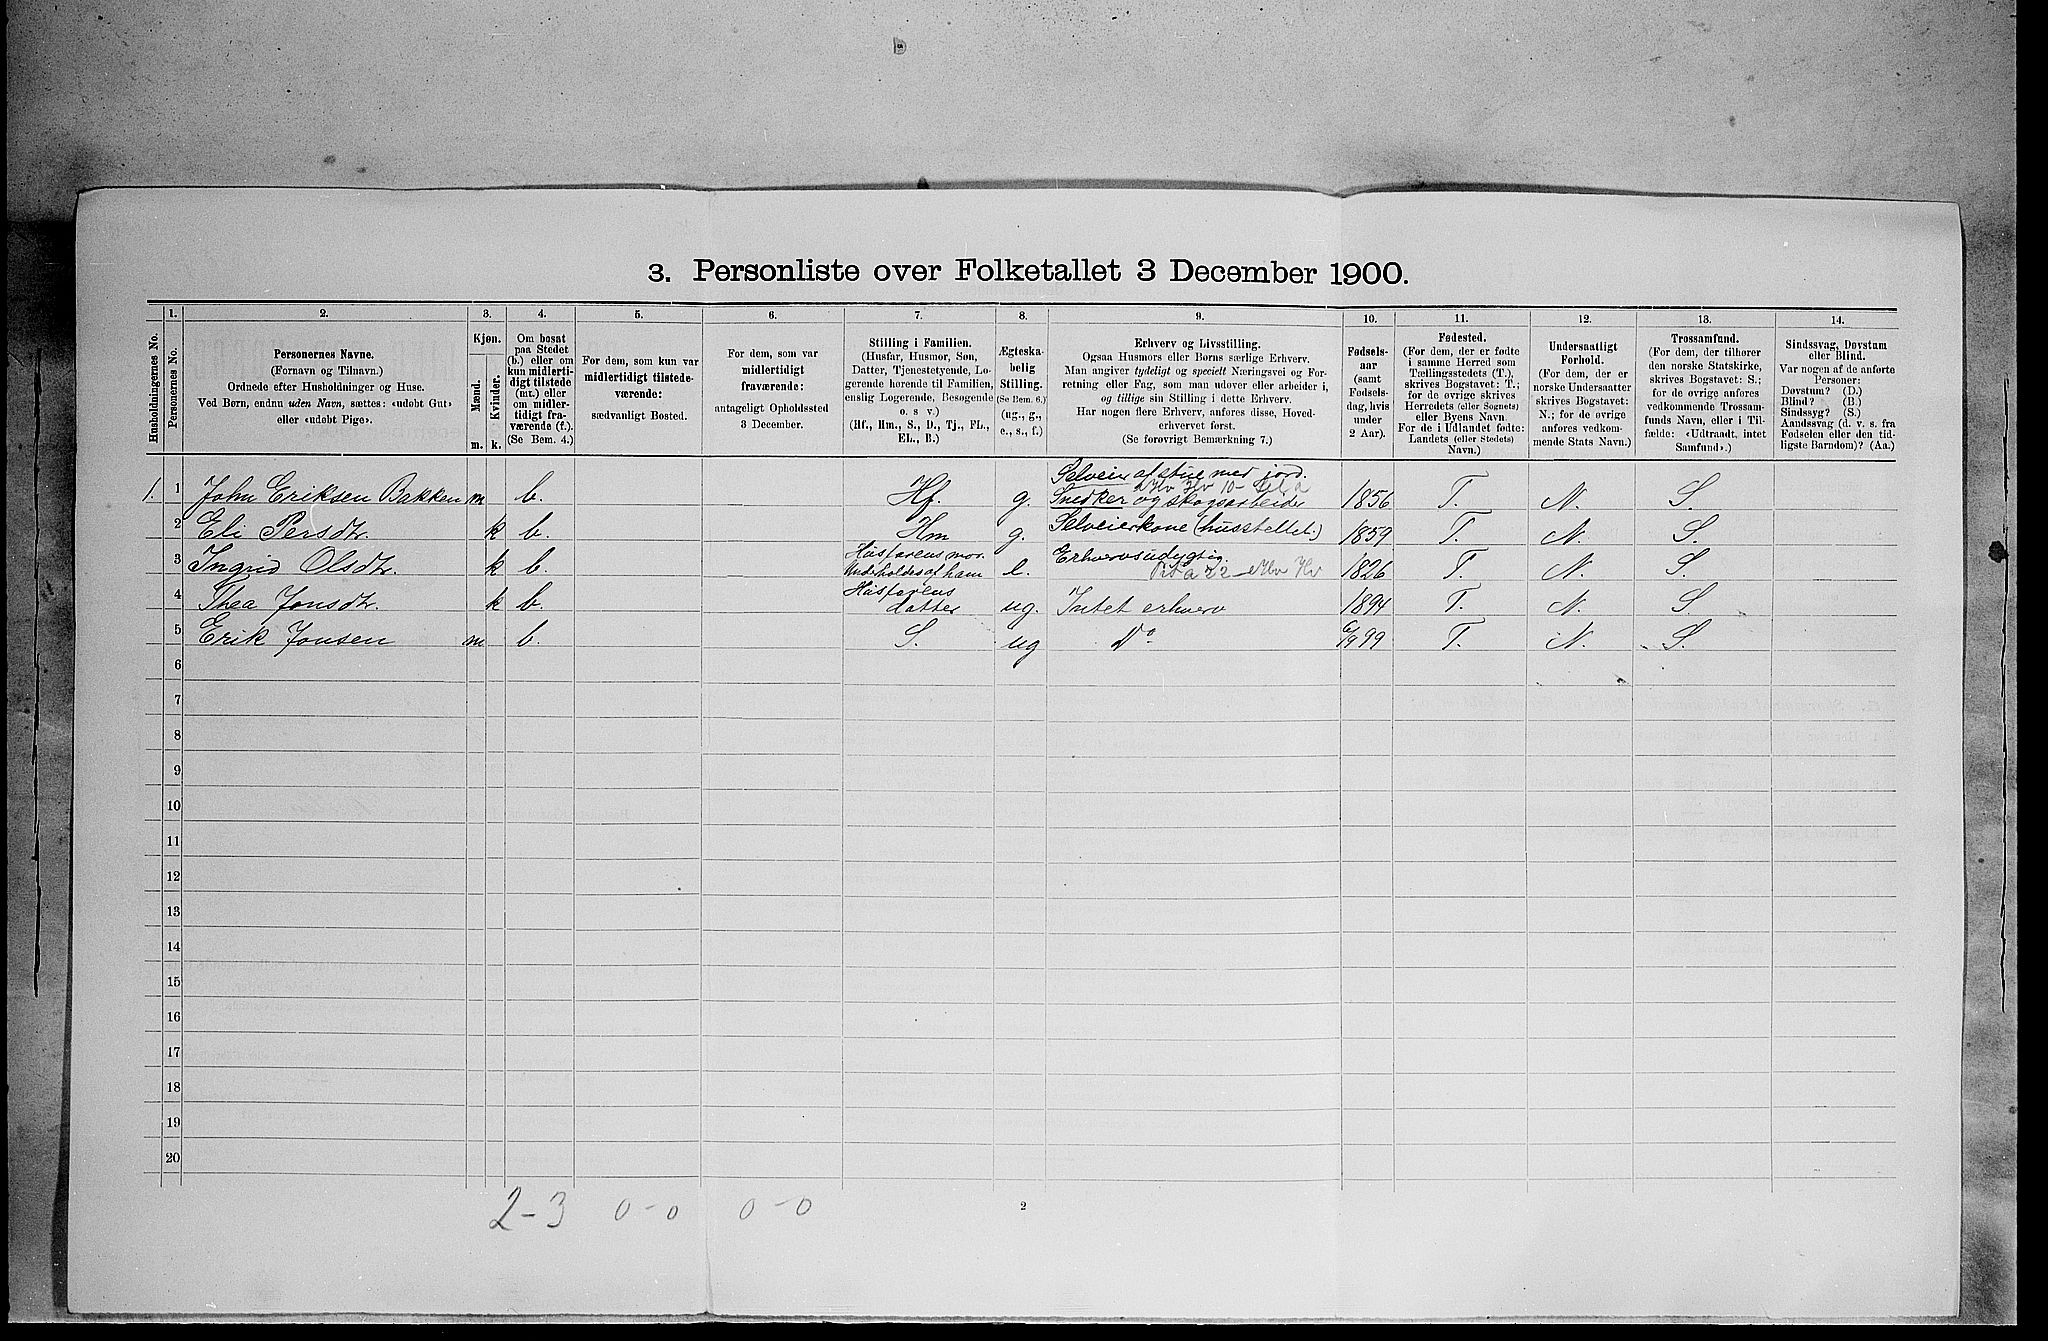 3. Personliste over Folketallet 3 December 1900.
Husholdningernes No.
1.
Personernes No.
2.
Personernes Navne.
(Fornavn og Tilnavn.)
Ordnede efter Husholdninger og Huse.
Ved Børn, endnu uden Navn, sættes: «udøbt Gut»
eller «udøbt Pige».
3.
Kjøn.
Mænd.
Kvinder.
m.
k.
4.
Om bosat
paa Stedet
(b.) eller om
kun midlerti-
digt tilstede
(mt.) eller
om midler-
tidigt fra-
værende (f.).
(Se Bem. 4.)
5.
For dem, som kun var
midlertidigt tilstede-
værende:
sædvanligt Bosted.
6.
For dem, som var
midlertidigt
fraværende:
antageligt Opholdssted
3 December.
7.
Stilling i Familien.
(Husfar, Husmor, Søn,
Datter, Tjenestetyende, Lo-
gerende hørende til Familien,
enslig Logerende, Besøgende
o. s v.)
(Hf., Hm., S., D., Tj., FL.,
EL., B.)
8.
Ægteska-
belig
Stilling.
(Se Bem. 6.)
(ug., g.,
e., s., f.)
9.
Erhverv og Livsstilling.
Ogsaa Husmors eller Børns særlige Erhverv.
Man angiver tydeligt og specielt Næringsvei og For-
retning eller Fag, som man udøver eller arbeider i,
og tillige sin Stilling i dette Erhverv.
Har nogen flere Erhverv, anføres disse, Hoved-
erhvervet først.
(Se forøvrigt Bemærkning 7.)
10.
Fødsels-
aar
(samt
Fødsels-
dag, hvis
under
2 Aar).
11.
Fødested.
(For dem, der er fødte
i samme Herred som
Tællingsstedets (T.),
skrives Bogstavet: T.;
for de øvrige skrives
Herredets (eller Sognets)
eller Byens Navn.
For de i Udlandet fødte:
Landets (eller Stedets)
Navn.)
12.
Undersaatligt
Forhold.
(For dem, der er
norske Undersaatter
skrives Bogstavet:
N.; for de øvrige
anføres vedkom-
mende Stats Navn.)
13.
Trossamfund.
(For dem, der tilhører
den norske Statskirke,
skrives Bogstavet: S.;
for de øvrige anføres
vedkommende Trossam-
funds Navn, eller i Til-
fælde: «Udtraadt, intet
Samfund».)
14.
Sindssvag, Døvstum
eller Blind.
Var nogen af de anførte
Personer:
Døvstum? (D.)
Blind? (B.)
Sindssyg? (S.)
Aandssvag (d. v. s. fra
Fødselen eller den tid-
ligste Barndom)? (Aa.)
Selveier af stue med jord.
1. 1 John Eriksen Bakken m b. Hf. g. Snedker og skogsarbeider 1856 T. N. S.
2 Eli Persdtr. k b. Hm g. Selveierkone (husstellet.) 1859 T. N. S.
Husfarens mor. Erhvervsudygtig
3 Ingrid Olsdtr. k b. Underholdes af ham e. 1826 T. N. S.
Husfarens
4 Thea Jonsdtr. k b. datter ug. Intet erhverv 1894 T. N. S.
5 Erik Jonsen m b. S. ug Do. 6/9 99 T. N. S.
6
7
8
9
10
11
12
13
14
15
16
17
18
19
20
2-3 0-0 0-0
2